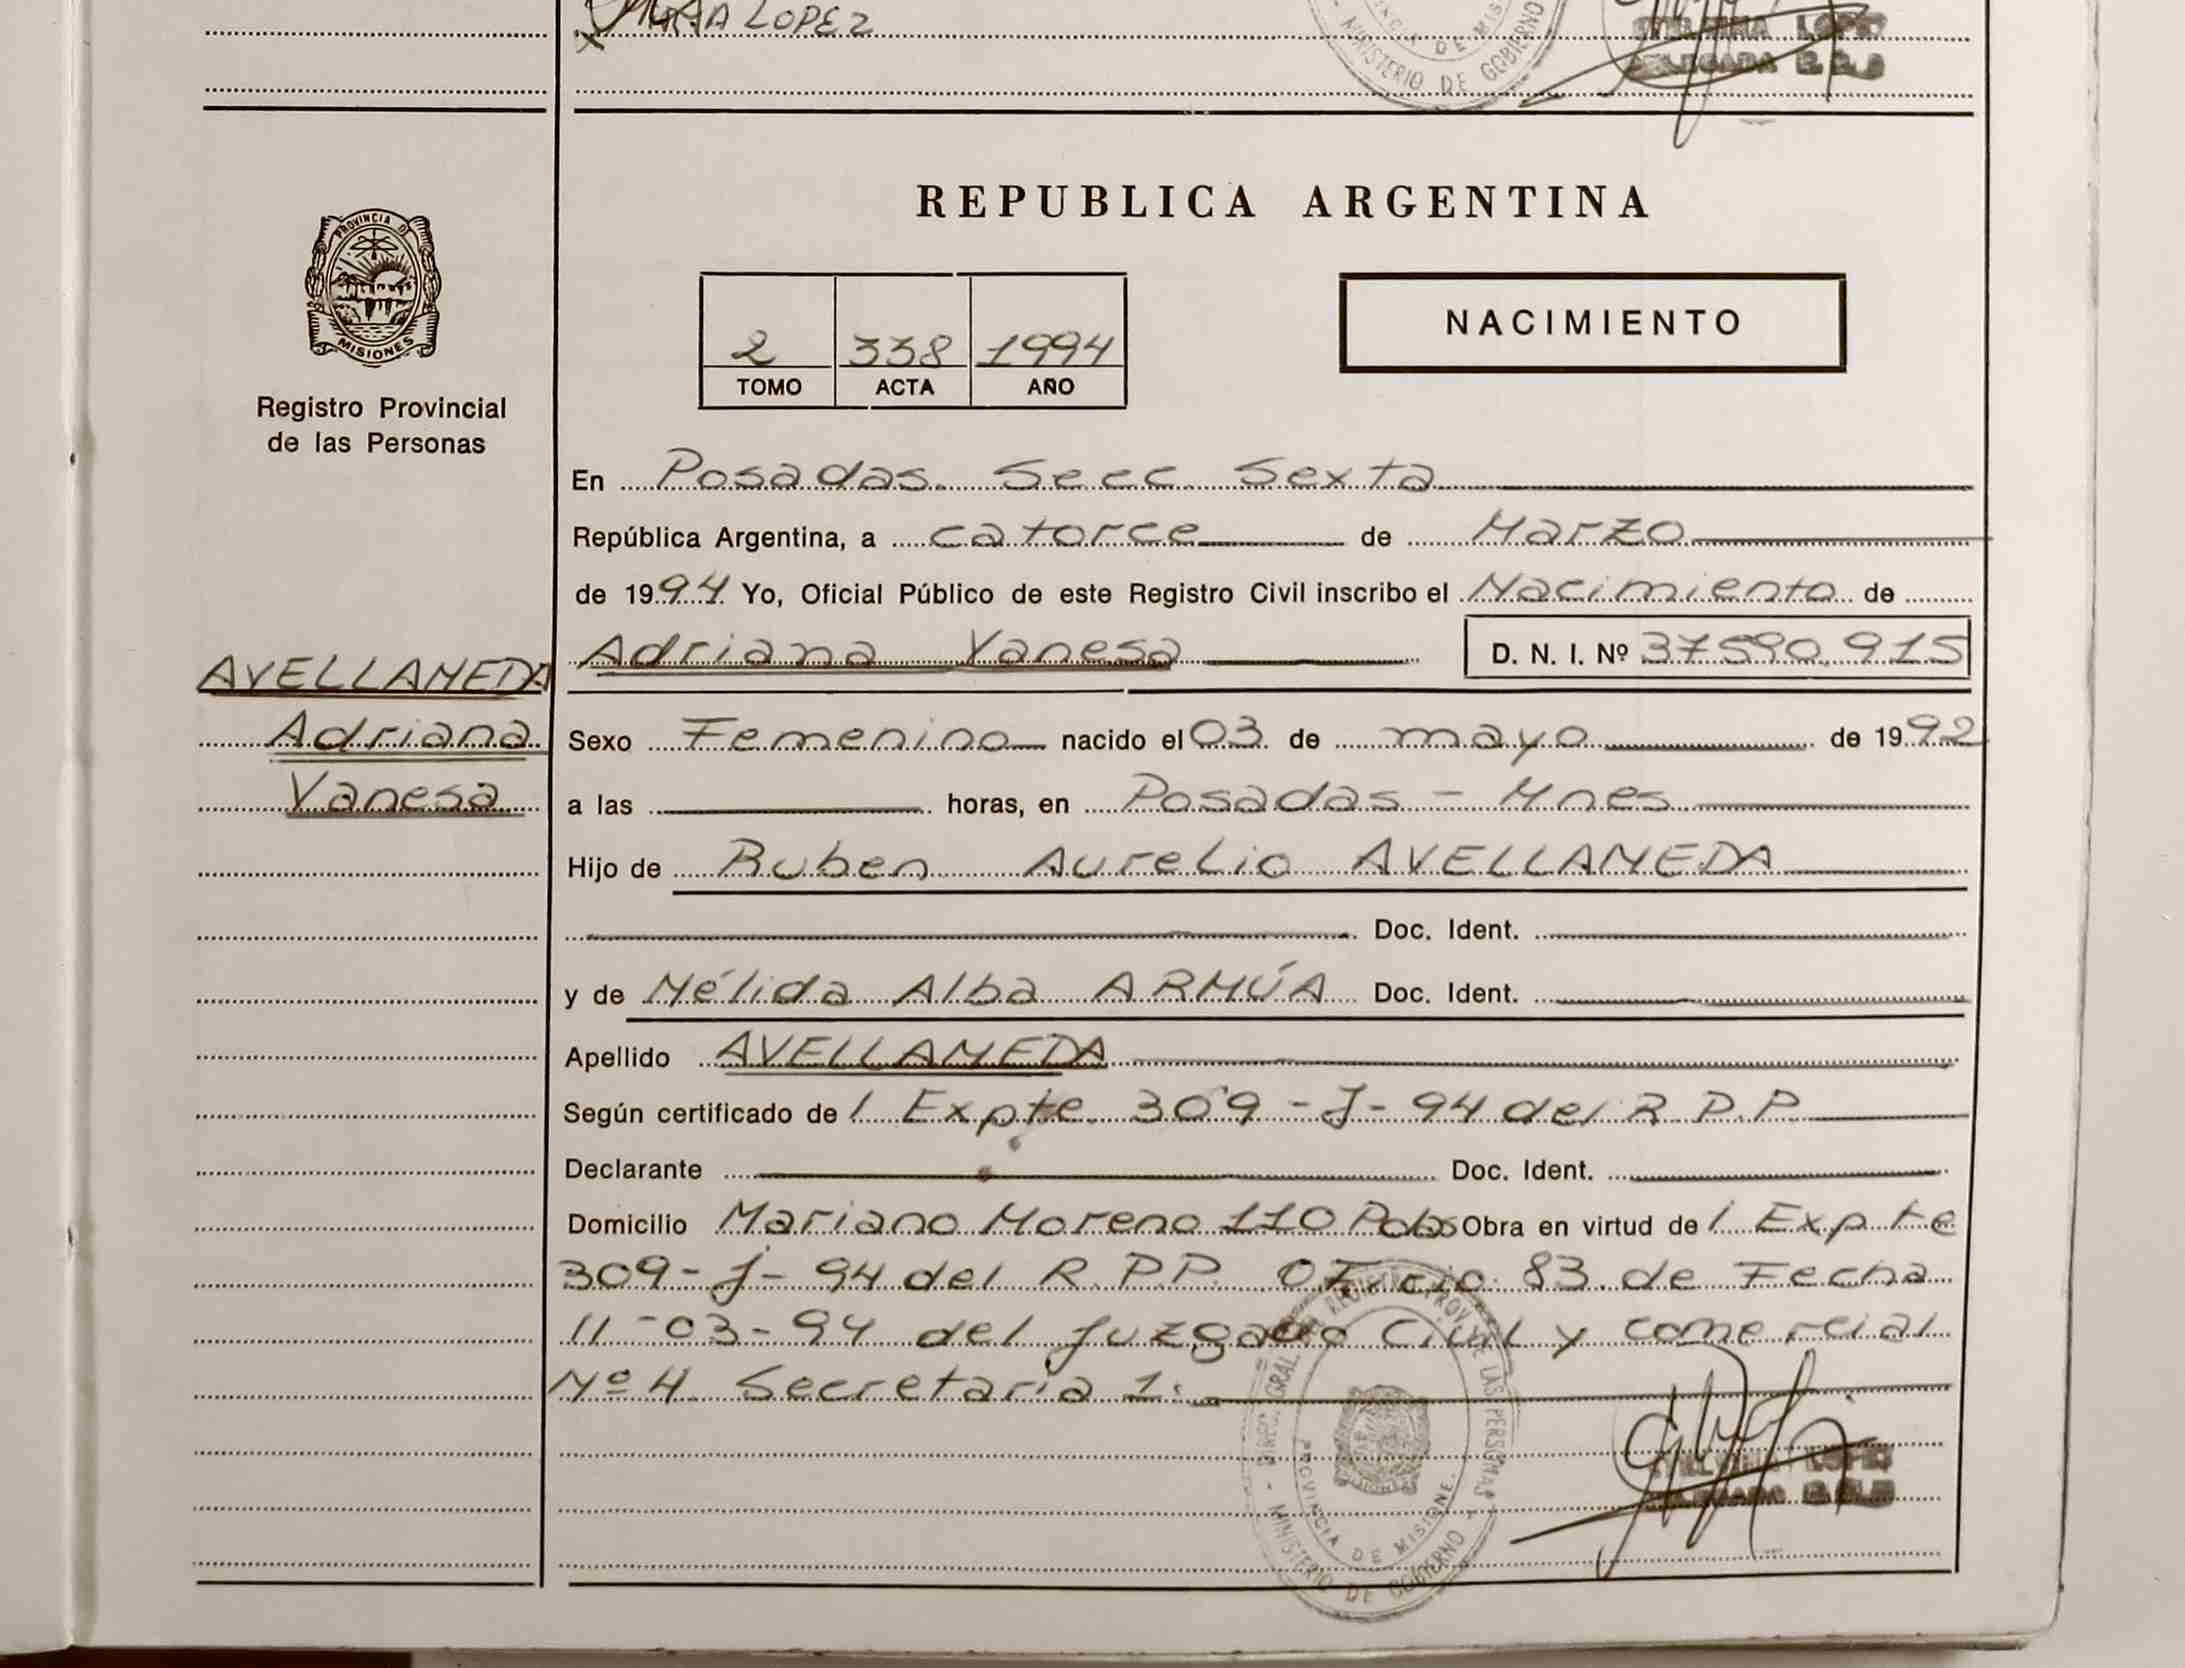 LOPEZ
MINISTERIO DE GOBIERNO
REPUBLICA ARGENTINA
PROVINCIA D
MISIONES
NACIMIENTO
2 338 1994
TOMO ACTA AÑO
Registro Provincial
de las Personas
En Posadas. Secc. Sexta
República Argentina, a catorce de Marzo
de 1994 Yo, Oficial Público de este Registro Civil inscribo el Nacimiento de
Adriana Vanesa D. N. I. Nº 37590.915
AVELLANEDA
Adriana
Vanesa
Sexo Femenino nacido el 03 de mayo de 1992
a las horas, en Posadas - Mnes
Hijo de Ruben Aurelio AVELLANEDA
Doc. Ident.
y de Nélida Alba ARMÚA Doc. Ident.
Apellido AVELLANEDA
Según certificado de / Expte 309-J-94 del R.P.P
Declarante Doc. Ident.
Domicilio Mariano Moreno 110 Pdas Obra en virtud de / Expte
309-J-94 del R.P.P. Oficio 83 de Fecha
11-03-94 del Juzgado Civil y comercial
Nº 4 Secretaría 1.
LAS PERSONAS
PROVINCIA DE MISIONES
MINISTERIO DE GOBIERNO
LOPEZ